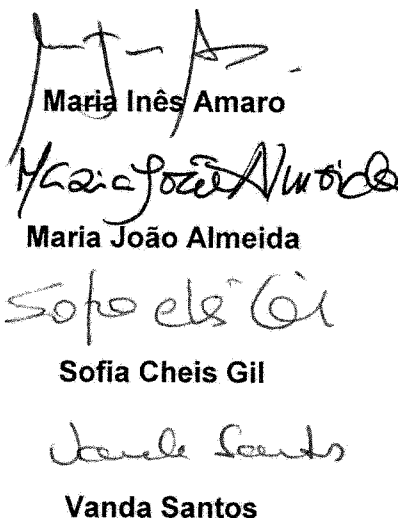 Maria Inês Amaro
Maria João Almeida
Maria João Almeida
Sofia Cheis Gil
Vanda Santos
Vanda Santos